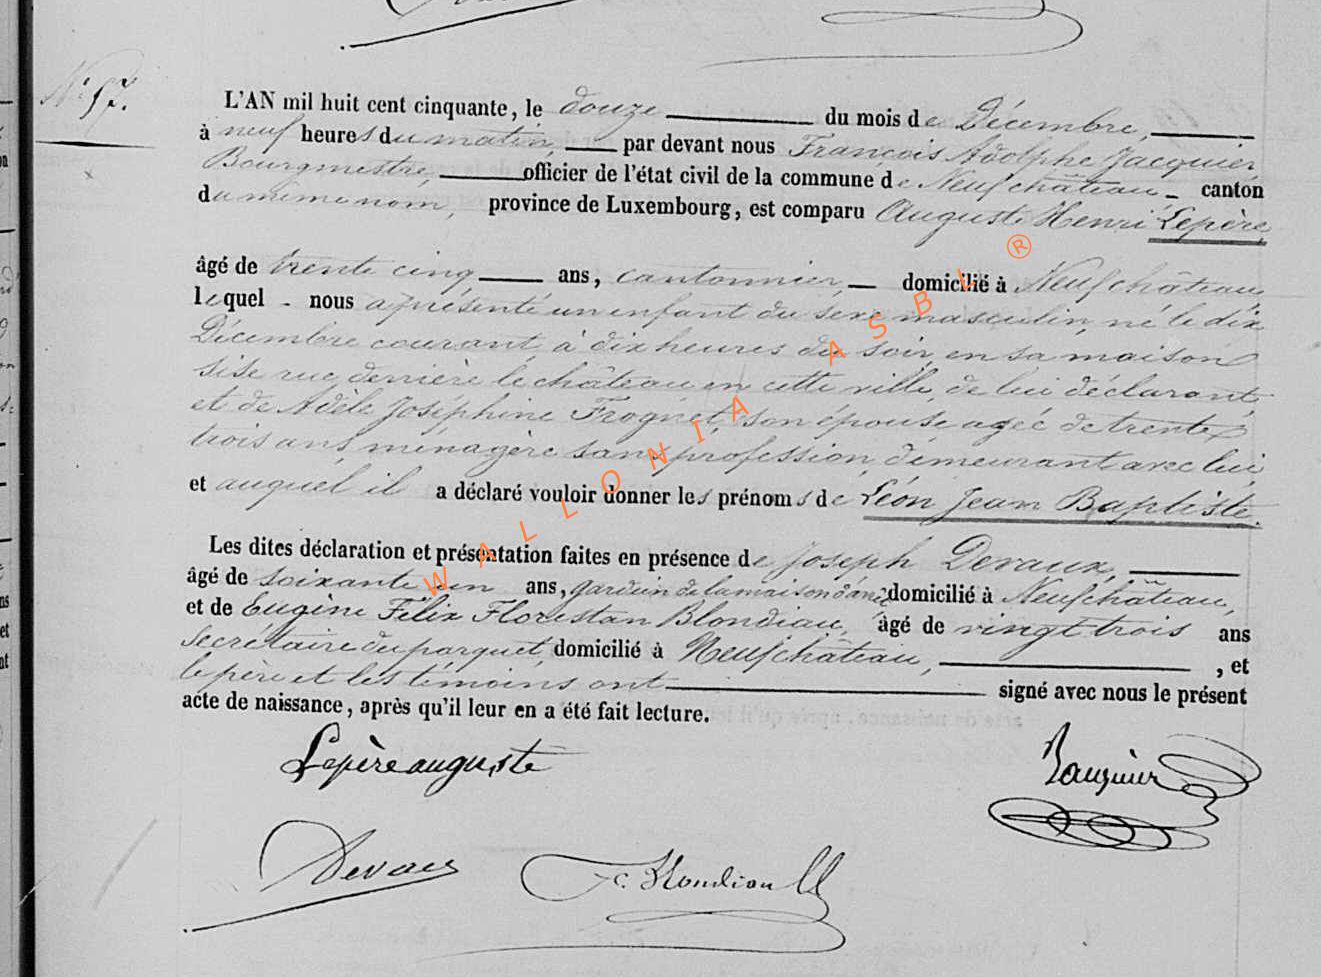 N° 57.
L'AN mil huit cent cinquante, le douze du mois de Décembre,
à neuf heures du matin, par devant nous François Adolphe Jacquier,
Bourgmestre, officier de l'état civil de la commune de Neufchâteau canton
du même nom, province de Luxembourg, est comparu Auguste Henri Lepère,
âgé de trente cinq ans, cantonnier, domicilié à Neufchâteau,
lequel nous a présenté un enfant du sexe masculin, né le dix
Décembre courant à dix heures du soir, en sa maison
sise rue derrière le château en cette ville, de lui déclarant
et de Adèle Joséphine Frognet, son épouse, agée de trente
trois ans, ménagère sans profession, demeurant avec lui
et auquel il a déclaré vouloir donner les prénoms de Léon Jean Baptiste.
Les dites déclaration et présentation faites en présence de Joseph Devaux,
âgé de soixante un ans, gardien de la maison domicilié à Neufchâteau,
et de Eugène Félix Florestan Blondiau, âgé de vingt trois ans
Secrétaire du parquet, domicilié à Neufchâteau, , et
le père et les témoins ont signé avec nous le présent
acte de naissance, après qu'il leur en a été fait lecture.
Lepère auguste
Jacquier
Devaux
F. Blondiau
WALLONIA ASBL ®